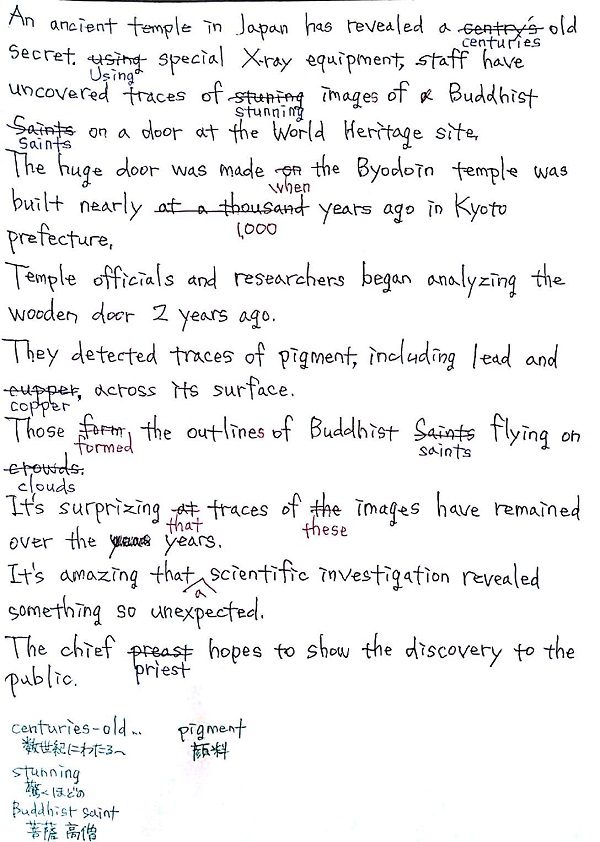 An ancient temple in Japan has revealed a centry's old
centuries
secret. using special X-ray equipment, staff have
Using
uncovered traces of stuning images of a Buddhist
stunning
Saints on a door at the World Heritage site.
saints
The huge door was made on the Byodoin temple was
when
built nearly at a thousand years ago in Kyoto
1,000
prefecture.
Temple officials and researchers began analyzing the
wooden door 2 years ago.
They detected traces of pigment, including lead and
cupper, across its surface.
copper
Those form the outlines of Buddhist Saints flying on
formed saints
crowds.
clouds
It's surprizing at traces of the images have remained
that these
over the years.
It's amazing that scientific investigation revealed
a
something so unexpected.
The chief preast hopes to show the discovery to the
priest
public.
centuries-old... pigment
数世紀にわたる 顔料
stunning
驚くほどの
Buddhist saint
菩薩 高僧